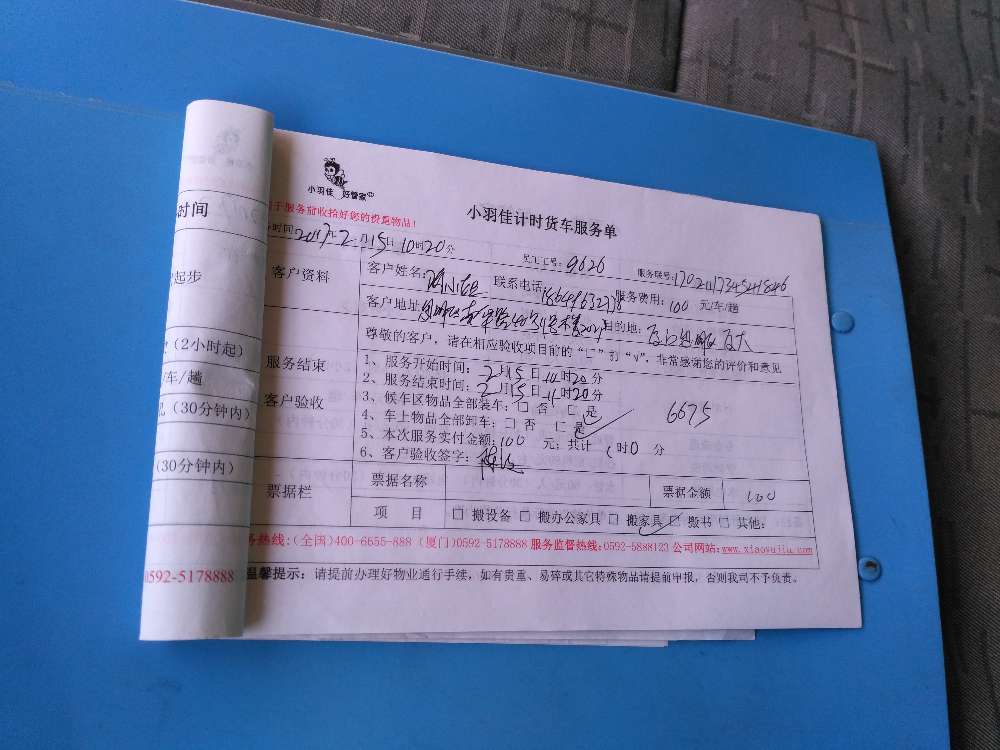 小羽佳 好管家
小羽佳计时货车服务单
于服务前收拾好您的贵重物品!
时间2017年2月15日10时20分 员工工号:9626 服务联号:
客户资料 客户姓名: 联系电话: 服务费用:100 元/车/趟
客户地址 目的地:
尊敬的客户,请在相应验收项目前的“□”打“√”,非常感谢您的评价和意见
服务结束
客户验收
1、服务开始时间:2月15日10时20分
2、服务结束时间:2月15日11时20分
3、候车区物品全部装车:□ 否 □ 是
4、车上物品全部卸车:□ 否 □ 是
6675
5、本次服务实付金额:100 元;共计 1时0 分
6、客户验收签字:
票据栏 票据名称 票据金额 100
项 目 □ 搬设备 □ 搬办公家具 □ 搬家具 □ 搬书 □ 其他:
务热线:(全国)400-6655-888 (厦门)0592-5178888 服务监督热线:0592-5888123 公司网站:www.xiaoyujia.com
温馨提示:请提前办理好物业通行手续,如有贵重、易碎或其它特殊物品请提前申报,否则我司不予负责。
时间
起步
(2小时起)
车/趟
(30分钟内)
(30分钟内)
0592-5178888